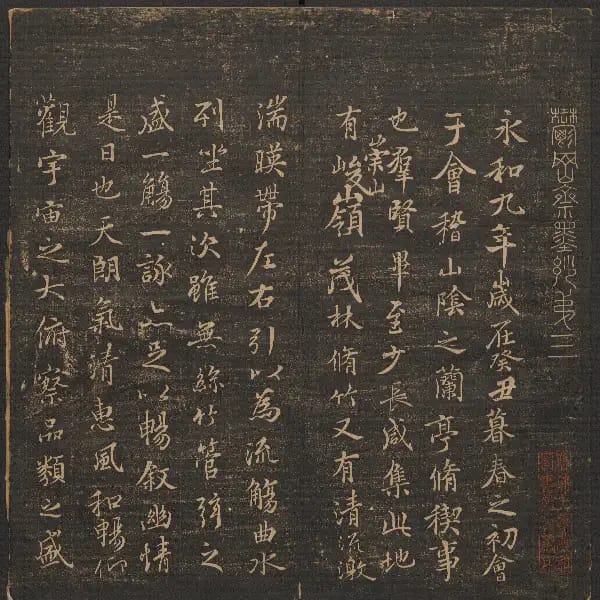 鬱岡齋墨妙弟三
永和九年歲在癸丑暮春之初會
于會稽山陰之蘭亭脩稧事
也羣賢畢至少長咸集此地
有崇山峻嶺茂林脩竹又有清流激
湍暎帶左右引以為流觴曲水
列坐其次雖無絲竹管弦之
盛一觴一詠亦足以暢敘幽情
是日也天朗氣清惠風和暢仰
觀宇宙之大俯察品類之盛